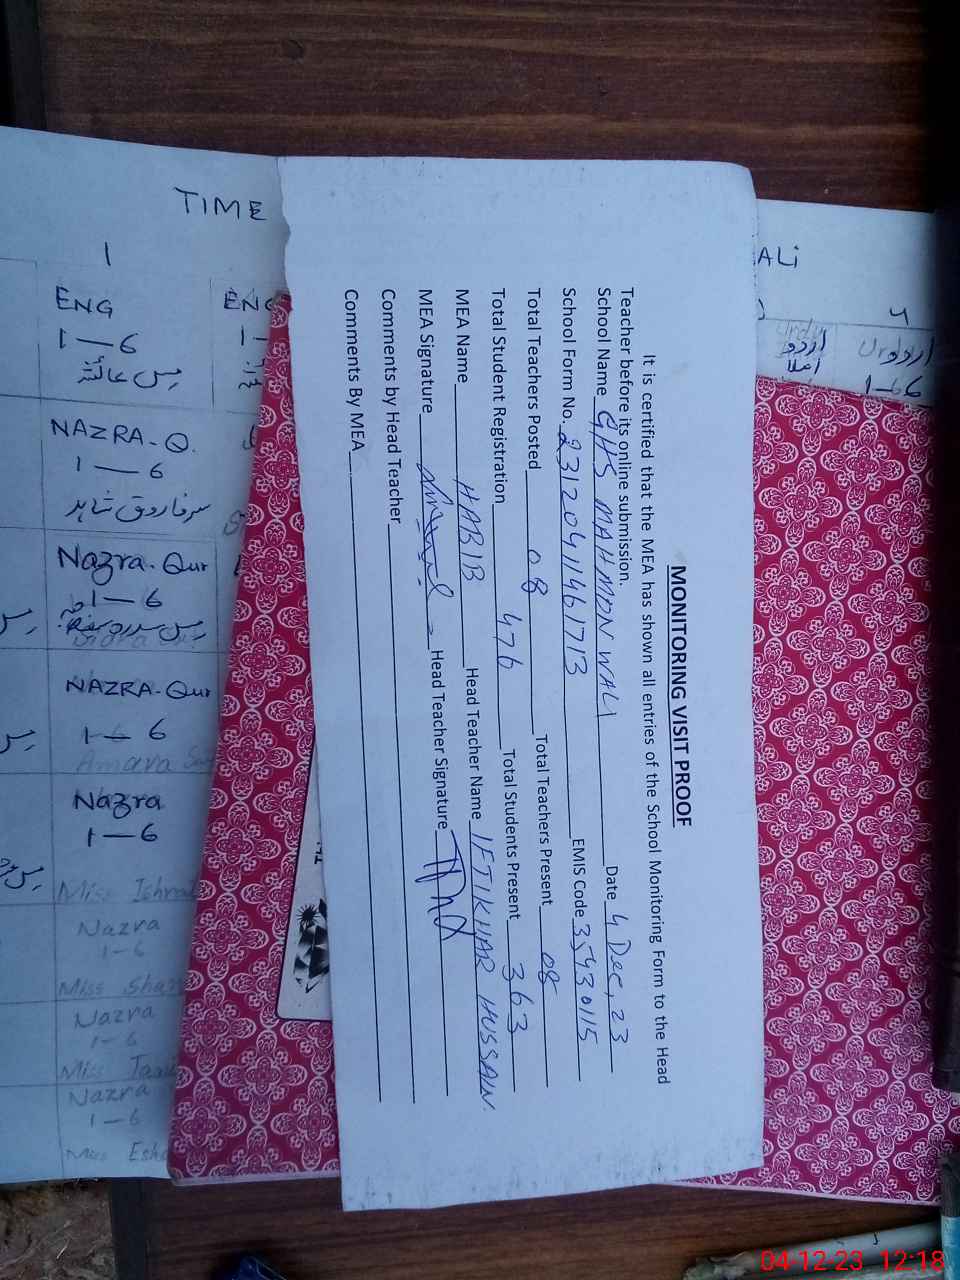 MONITORING VISIT PROOF
It is certified that the MEA has shown all entries of the School Monitoring Form to the Head
Teacher before its online submission.
School Name GHS MAHMDN WALI Date 4 Dec, 23
School Form No. 2312041461713 EMIS Code 35930115
Total Teachers Posted 08 Total Teachers Present 08
Total Student Registration 476 Total Students Present 363
MEA Name HABIB Head Teacher Name IFTIKHAR HUSSAIN.
MEA Signature Head Teacher Signature
Comments by Head Teacher
Comments By MEA
TIME
ALi
1
ENG
1-6
مس عائشہ
ENG
1-
NAZRA-Q.
1-6
سر فاروق شاہد
Nazra-Qur
1-6
NAZRA-Qur
1-6
Amara
Nazra
1-6
Miss Ishrat
Nazra
1-6
Miss
Nazra
1-6
Miss
Nazra
1-6
Miss
اردو
املا
اردو
1-6
04-12-23 12:18